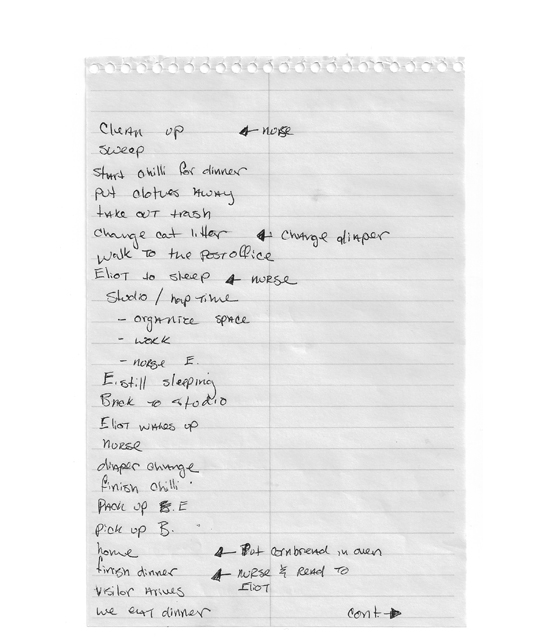 Clean up ← nurse
sweep
start chilli for dinner
put clothes away
take out trash
change cat litter ← change diaper
walk to the post office
Eliot to sleep ← nurse
Studio / nap time
- organize space
- work
- nurse E.
E. still sleeping
Back to studio
Eliot wakes up
nurse
diaper change
finish chilli
Pack up E
pick up B.
home ← Put cornbread in oven
finish dinner ← nurse & read to
visitor arives Eliot
we eat dinner cont →